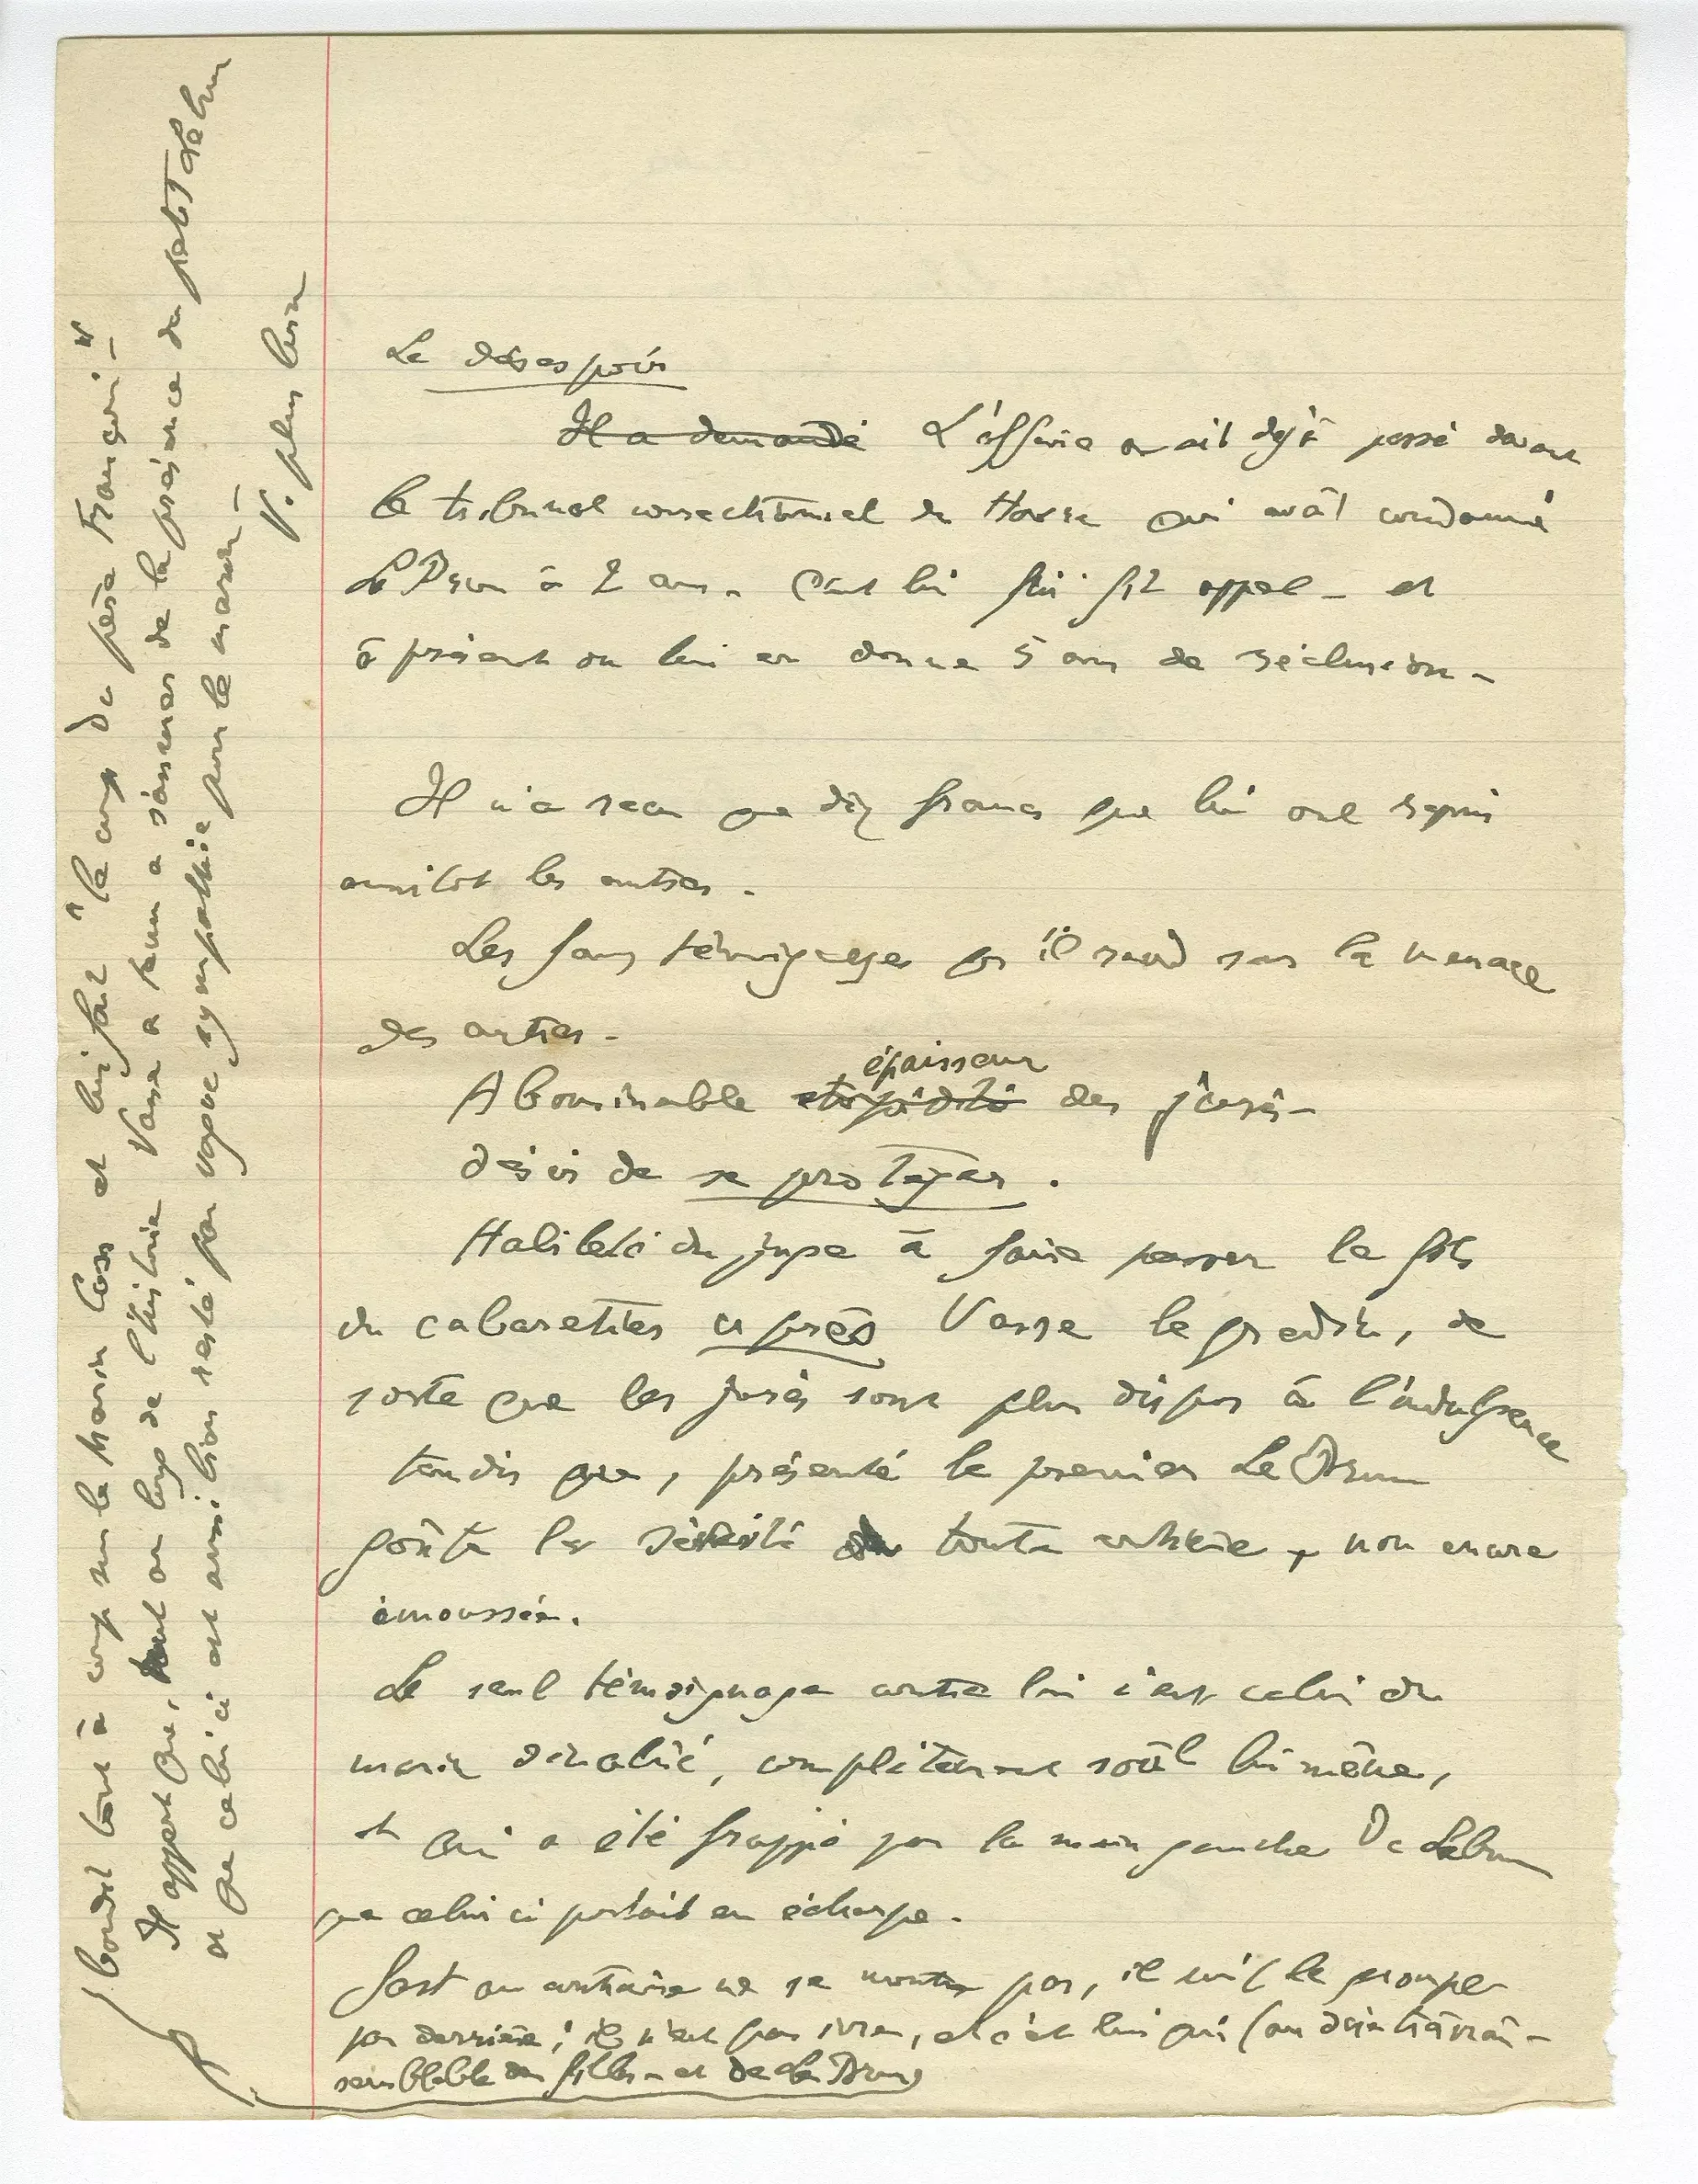 Le désespoir
Il a demandé L'affaire avait déjà passé devant
le tribunal correctionnel du Havre qui avait condamné
Le Brun à 2 ans. C'est lui qui fit appel – et
à présent on lui en donne 5 ans de réclusion –
Il n'a reçu que dix francs que lui ont repris
aussitôt les autres.
Les faux témoignages qu'il rend sous la menace
des autres –
épaisseur
Abominable stupidité des jurés –
désir de se protéger.
Habileté du juge à faire passer le fils
du cabaretier après Vasse le gredin, de
sorte que les jurés sont plus dispos à l'indulgence
tandis que, présenté le premier Le Brun
goûte la sévérité toute entière, non encore
émoussée.
Le seul témoignage contre lui c'est celui du
marin dévalisé, complètement soûl lui même,
et qui a été frappé par la main gauche de Lebrun
que celui ci portait en écharpe.
Fort au contraire ne se montre pas, il suit le groupe
par derrière ; il n'est pas ivre, et c'est lui qui (au dire très vrai-
semblable des filles – et de Le Brun)
bondit tout à coup sur le marin Cass et lui fait "le coup du père François" –
Il appert que, tout au long de l'histoire Vasse a tenu à s'assurer de la présence du petit Lebrun
et que celui ci est aussi bien resté par vague sympathie pour le marin –
V. plus loin